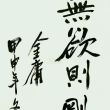 無欲則剛
金庸
甲申年